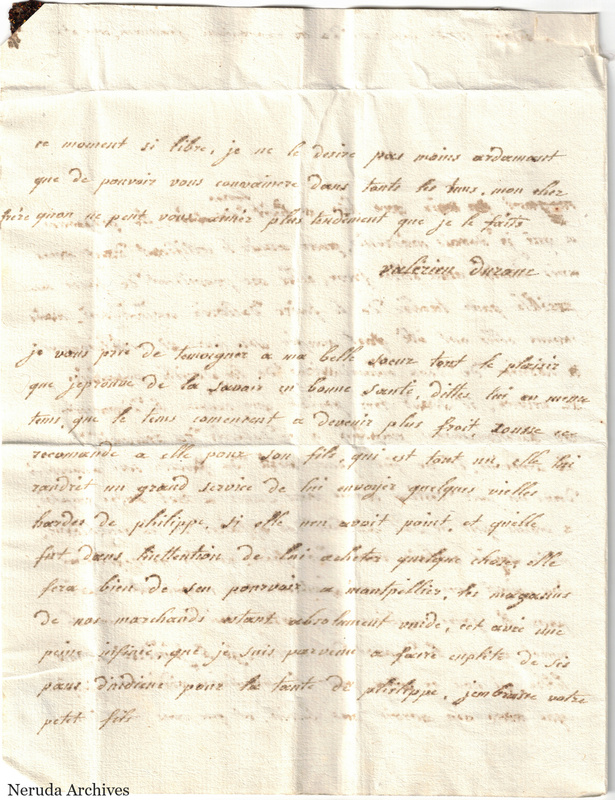 ce moment si libre, je ne le desire pas moins ardamant
que de pouvoir vous convaincre dans touts les tems, mon cher
frère qu'on ne peut vous aimer plus tendement que je le faits
valérien durane
je vous prie de temoigner a ma belle soeur tout le plaisir
que jeprouve de la savoir en bonne santé, dittes lui en meme
tems, que le tems comenrent a devenir plus froit rousse ce
recomande a elle pour son fils, qui est tout nu, elle lui
randret un grand service de lui envoyer quelques vielles
hardes de philippe, si elle nen avoit point, et quelle
fut dans linttention de lui acheter quelque chose, elle
fera bien de sen pourvoir a montpellier, les magasins
de nos marchands estant absolument vuide, cet avec une
peine infinie que je suis parvenu a faire enplite de sis
pans dindiene pour la tante de philippe, jembrasse votre
petit fils
Neruda Archives